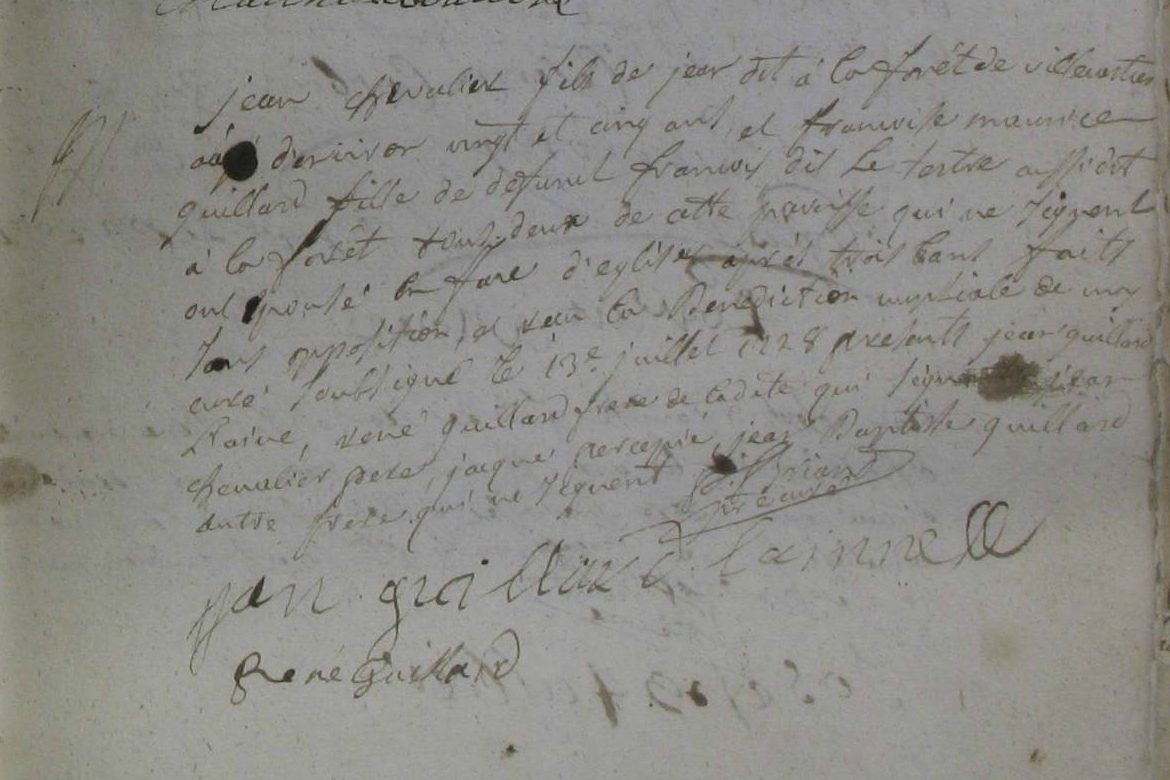 jean chevalier fils de jean dit à la forêt de
âgé d'environ vingt et cinq ans, et francoise maurice
guillard fille de defunct francois dit Le tertre aussi dit
à la forêt tous deux de cette paroisse qui ne signent
ont epousé en face d'eglise après trois bans faits
sans opposition, et recu la Benediction nuptiale de moy
curé soubsigné le 13e juillet 1728 presents jean guillard
L'ainé, rené guillard frere de ladite qui signent jean
chevalier pere, jacque percepié, jean Baptiste guillard
autre frere qui ne signent
ptre curé
jan guillard lainnell
René Guillard